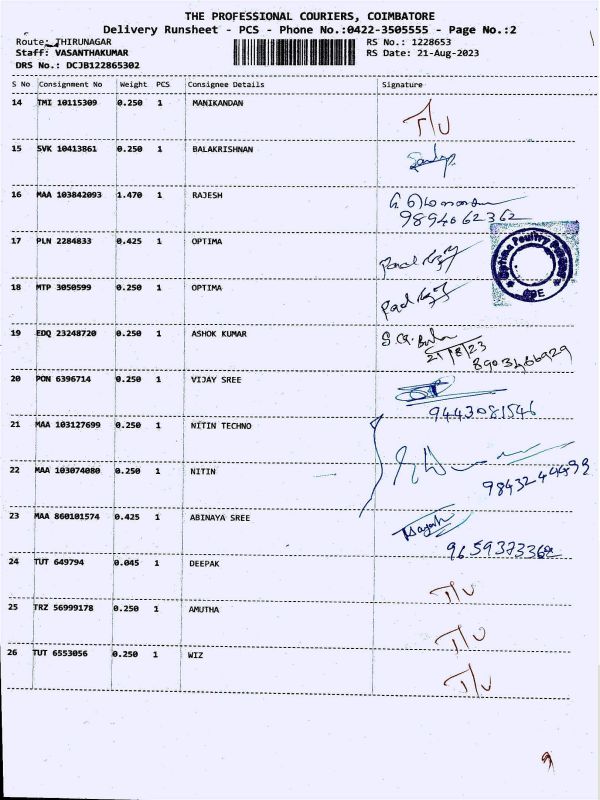 THE PROFESSIONAL COURIERS, COIMBATORE
Delivery Runsheet - PCS - Phone No.:0422-3505555 - Page No.:2
Route: THIRUNAGAR RS No.: 1228653
Staff: VASANTHAKUMAR RS Date: 21-Aug-2023
DRS No.: DCJB122865302
S No Consignment No Weight PCS Consignee Details Signature
14 TMI 10115309 0.250 1 MANIKANDAN T/U
15 SVK 10413861 0.250 1 BALAKRISHNAN
16 MAA 103842093 1.470 1 RAJESH
9894062362
17 PLN 2284833 0.425 1 OPTIMA
Optima Poultry
CBE
18 MTP 3050599 0.250 1 OPTIMA
19 EDQ 23248720 0.250 1 ASHOK KUMAR
21/8/23
8903466929
20 PON 6396714 0.250 1 VIJAY SREE
9443081546
21 MAA 103127699 0.250 1 NITIN TECHNO
22 MAA 103074080 0.250 1 NITIN
23 MAA 860101574 0.425 1 ABINAYA SREE
9659373362
24 TUT 649794 0.045 1 DEEPAK T/U
25 TRZ 56999178 0.250 1 AMUTHA T/U
26 TUT 6553056 0.250 1 WIZ T/U